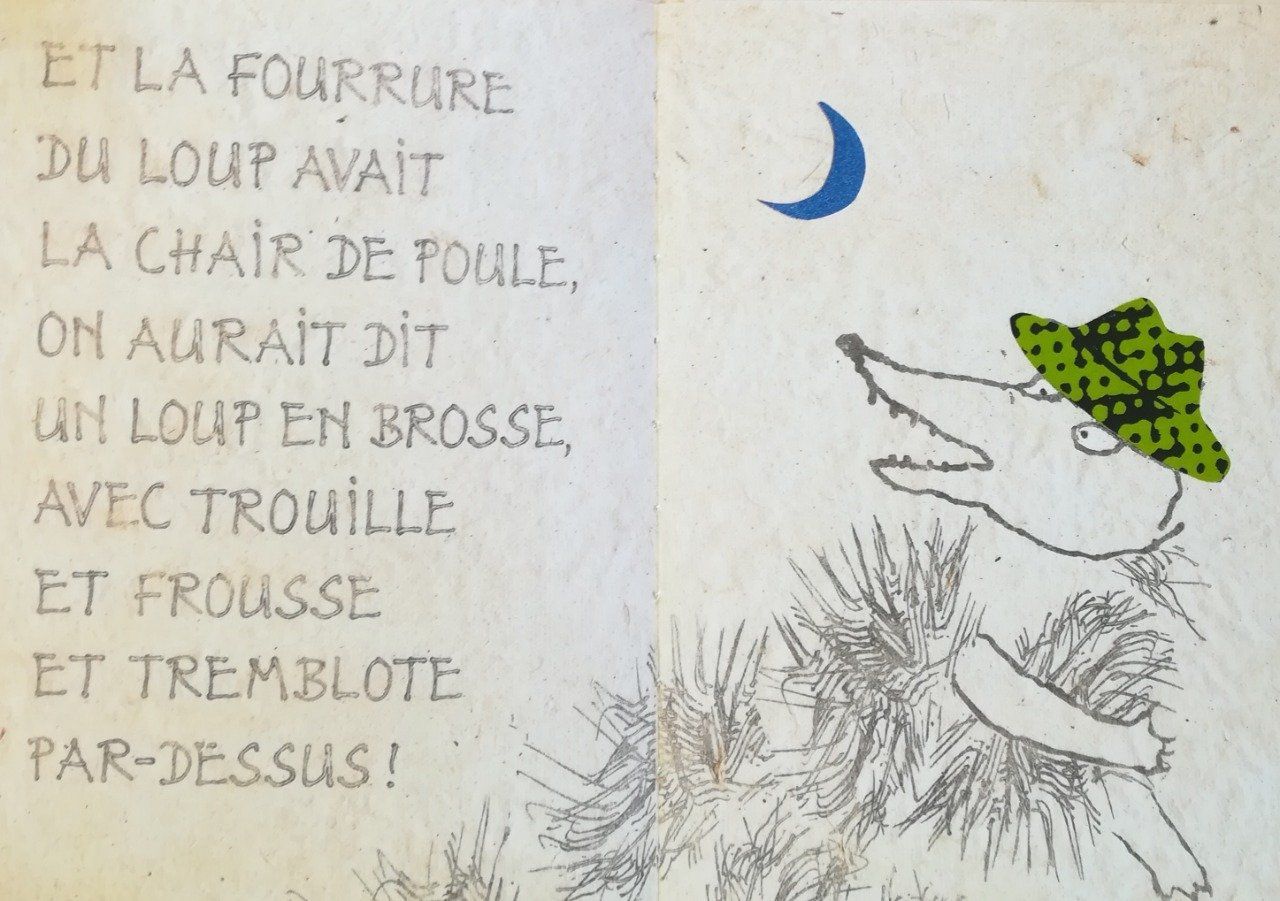 ET LA FOURRURE
DU LOUP AVAiT
LA CHAiR DE POULE,
ON AURAiT DiT
UN LOUP EN BROSSE,
AVEC TROUiLLE
ET FROUSSE
ET TREMBLOTE
PAR-DESSUS !